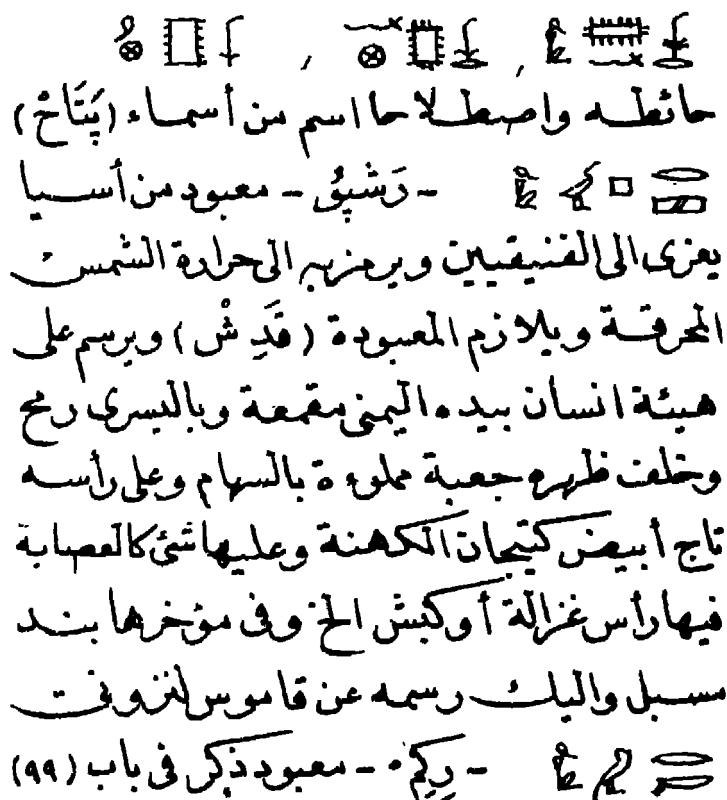 حائطه واصطلاحا اسم من أسماء (پتَاحْ)
- رَشْپُو - معبود من أسيا
يعزى الى الفنيقيين ويرمز به الى حرارة الشمس
المحرقة ويلازم المعبودة (قَدِشْ) ويرسم على
هيئة انسان بيده اليمنى مقمعة وباليسرى رمح
وخلف ظهره جعبة مملوءة بالسهام وعلى رأسه
تاج أبيض كتيجان الكهنة وعليها شئ كالعصابة
فيها رأس غزالة أو كبش الخ وفى مؤخرها بند
مسبل واليك رسمه عن قاموس لنزونى
- معبود ذكر فى باب (٩٩)